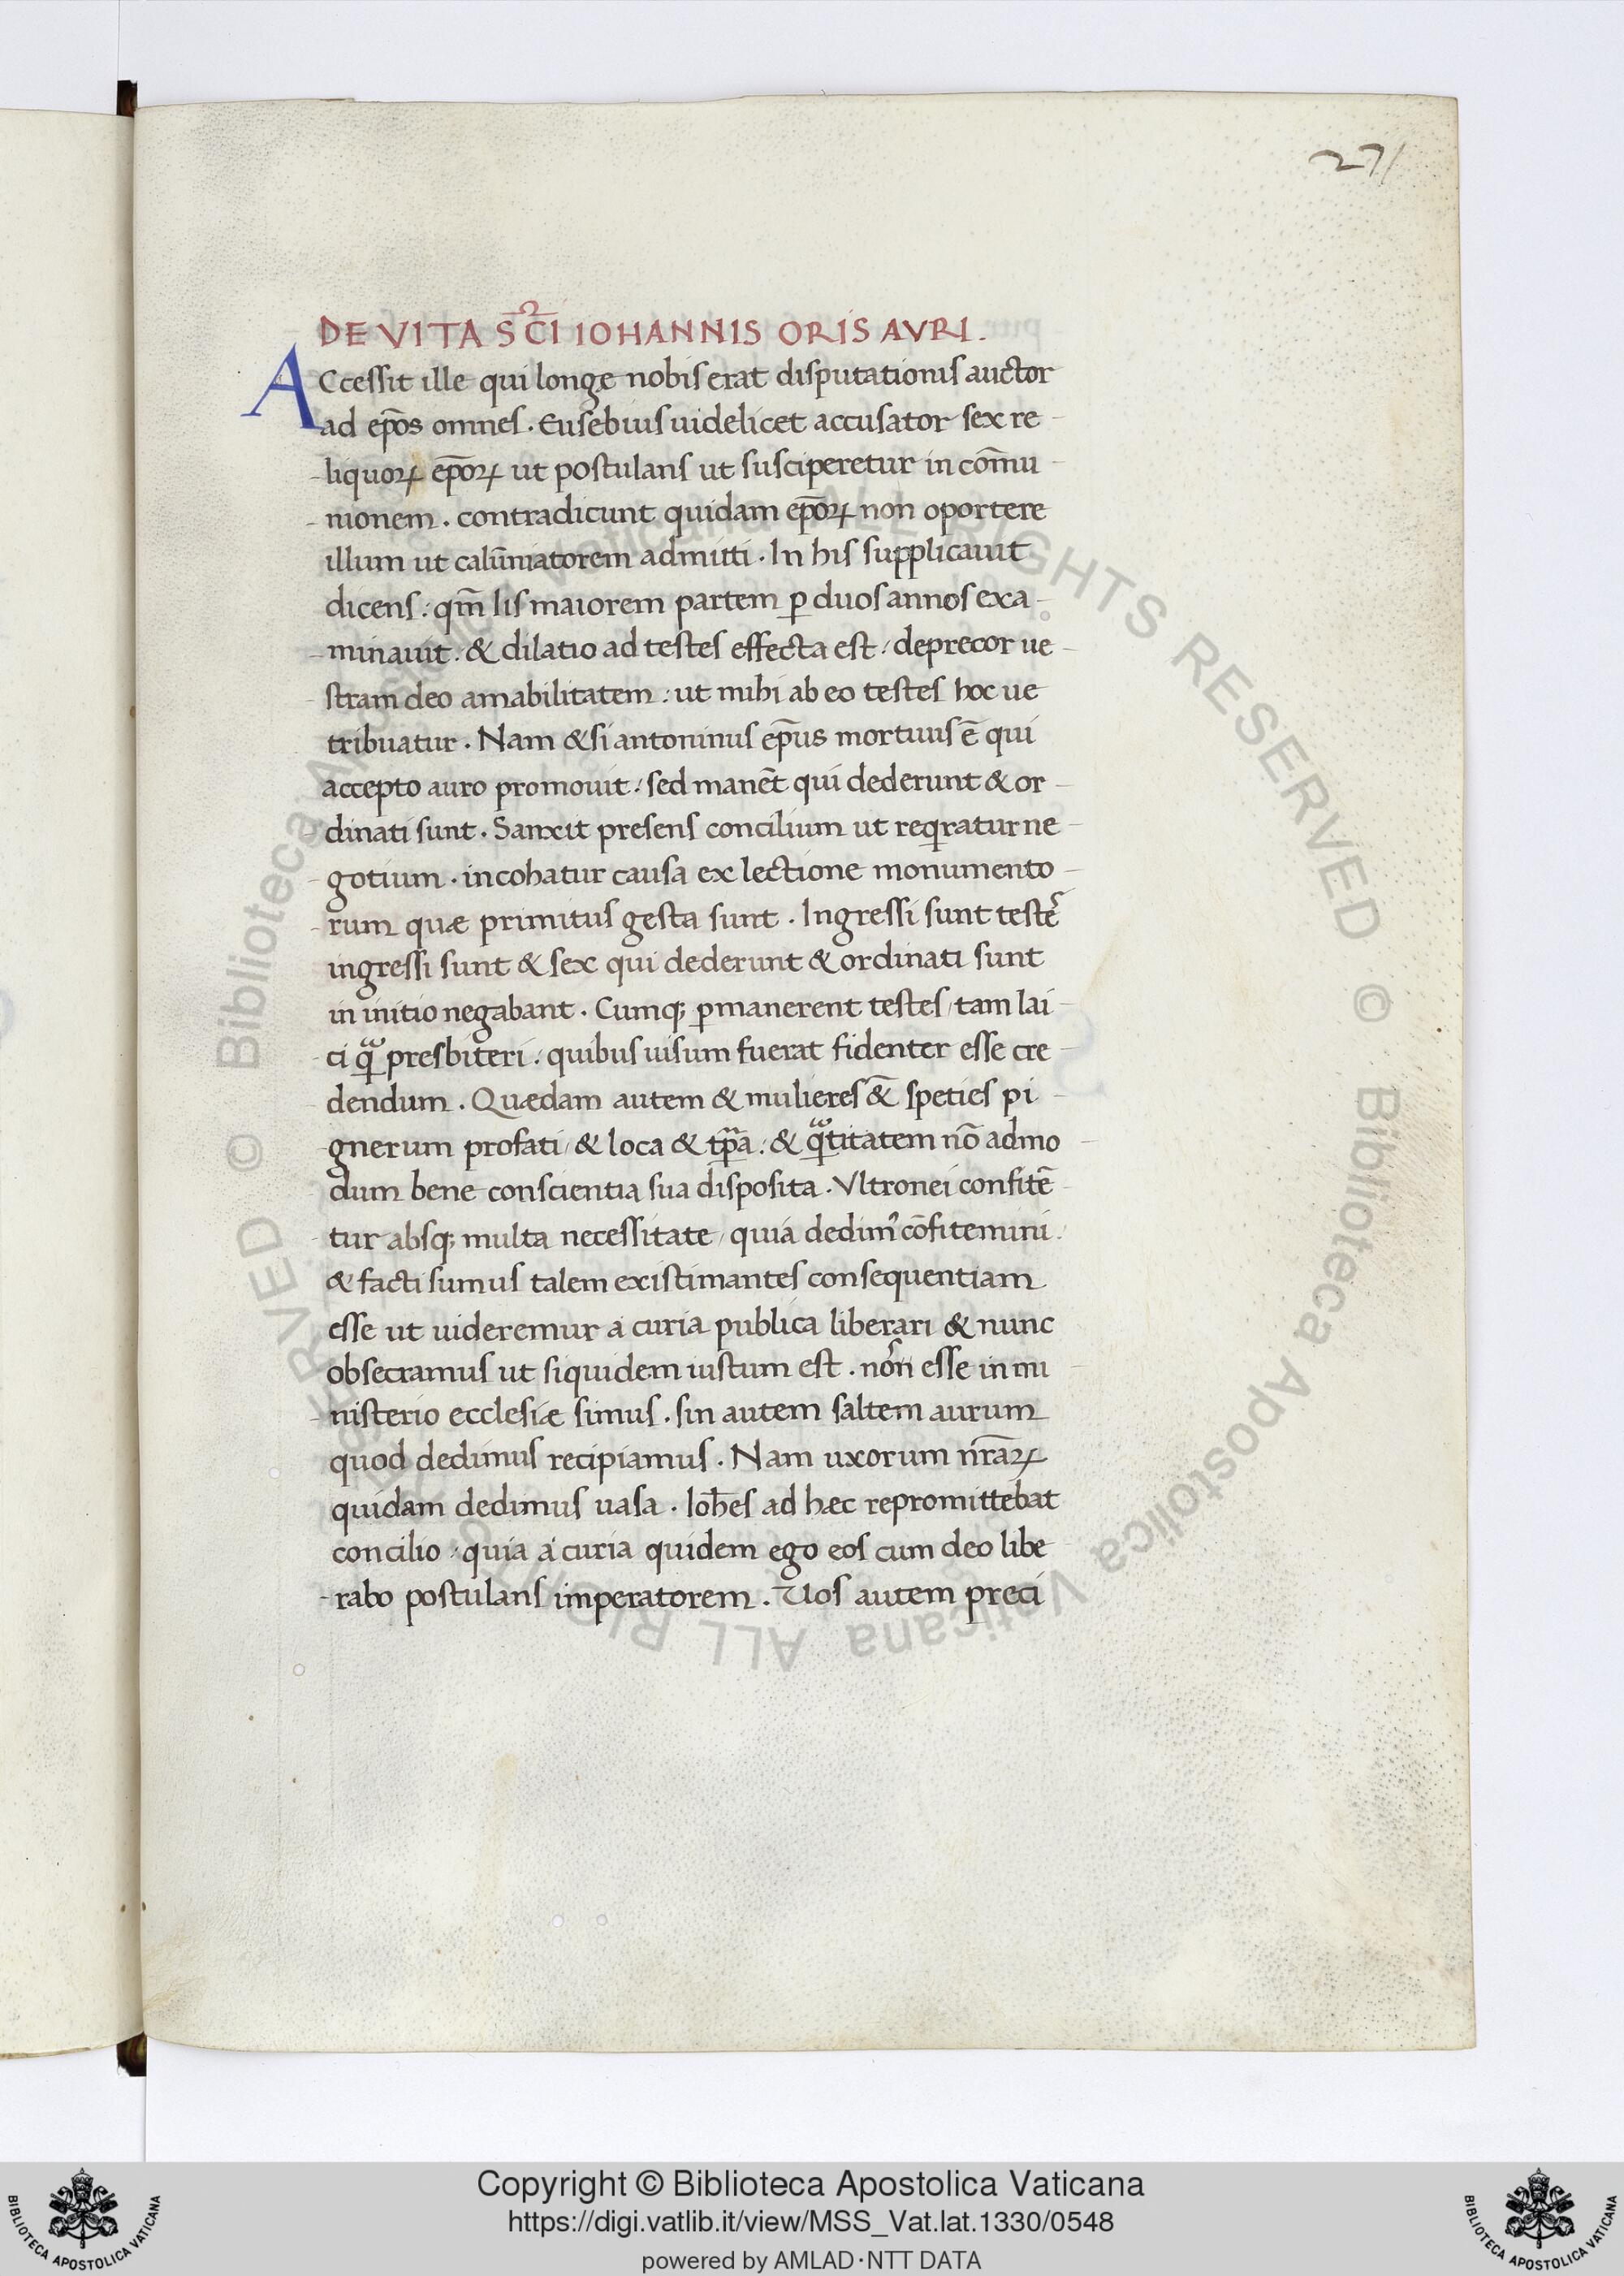 271
DE VITA SC̄I IOHANNIS ORIS AVRI.
ACcessit ille qui longe nobis erat disputationis auctor
ad ep̄os omnes. Eusebius uidelicet accusator sex re
liquoꝝ ep̄oꝝ ut postulans ut susciperetur in com̄u
nionem. contradicunt quidam ep̄oꝝ non oportere
illum ut calūniatorem admitti. In his supplicauit
dicens: qm̄ lis maiorem partem ꝑ duos annos exa
minauit. & dilatio ad testes effecta est: deprecor ue
stram deo amabilitatem: ut mihi ab eo testes hoc ue
tribuatur. Nam & si antoninus ep̄us mortuus ē qui
accepto auro promouit: sed manēt qui dederunt & or
dinati sunt. Sanxit presens concilium ut reqratur ne
gotium. incohatur causa ex lectione monumento
rum quæ primitus gesta sunt. Ingressi sunt testes
ingressi sunt & sex qui dederunt & ordinati sunt
in initio negabant. Cumq; ꝑmanerent testes, tam lai
ci qͣ presbiteri: quibus uisum fuerat fidenter esse cre
dendum. Quædam autem & mulieres &̄ speties pi
gnerum profati, & loca & tp̄ra: & qͣtitatem nō admo
dum bene conscientia sua disposita. Vltronei confitē
tur absq; multa necessitate, quia dedim' cōfitemini.
& facti sumus talem existimantes consequentiam
esse ut uideremur a curia publica liberari & nunc
obsecramus ut siquidem iustum est. nōn esse in mi
nisterio ecclesiæ simus. sin autem saltem aurum
quod dedimus recipiamus. Nam uxorum nr̄aꝝ
quidam dedimus uasa. Ioh̄es ad hæc repromittebat
concilio: quia a curia quidem ego eos cum deo libe
rabo postulans imperatorem. Uos autem preci
© Biblioteca Apostolica Vaticana ALL RIGHTS RESERVED © Biblioteca Apostolica Vaticana ALL RIGHTS RESERVED
Copyright © Biblioteca Apostolica Vaticana
https://digi.vatlib.it/view/MSS_Vat.lat.1330/0548
powered by AMLAD·NTT DATA
BIBLIOTECA APOSTOLICA VATICANA
BIBLIOTECA APOSTOLICA VATICANA